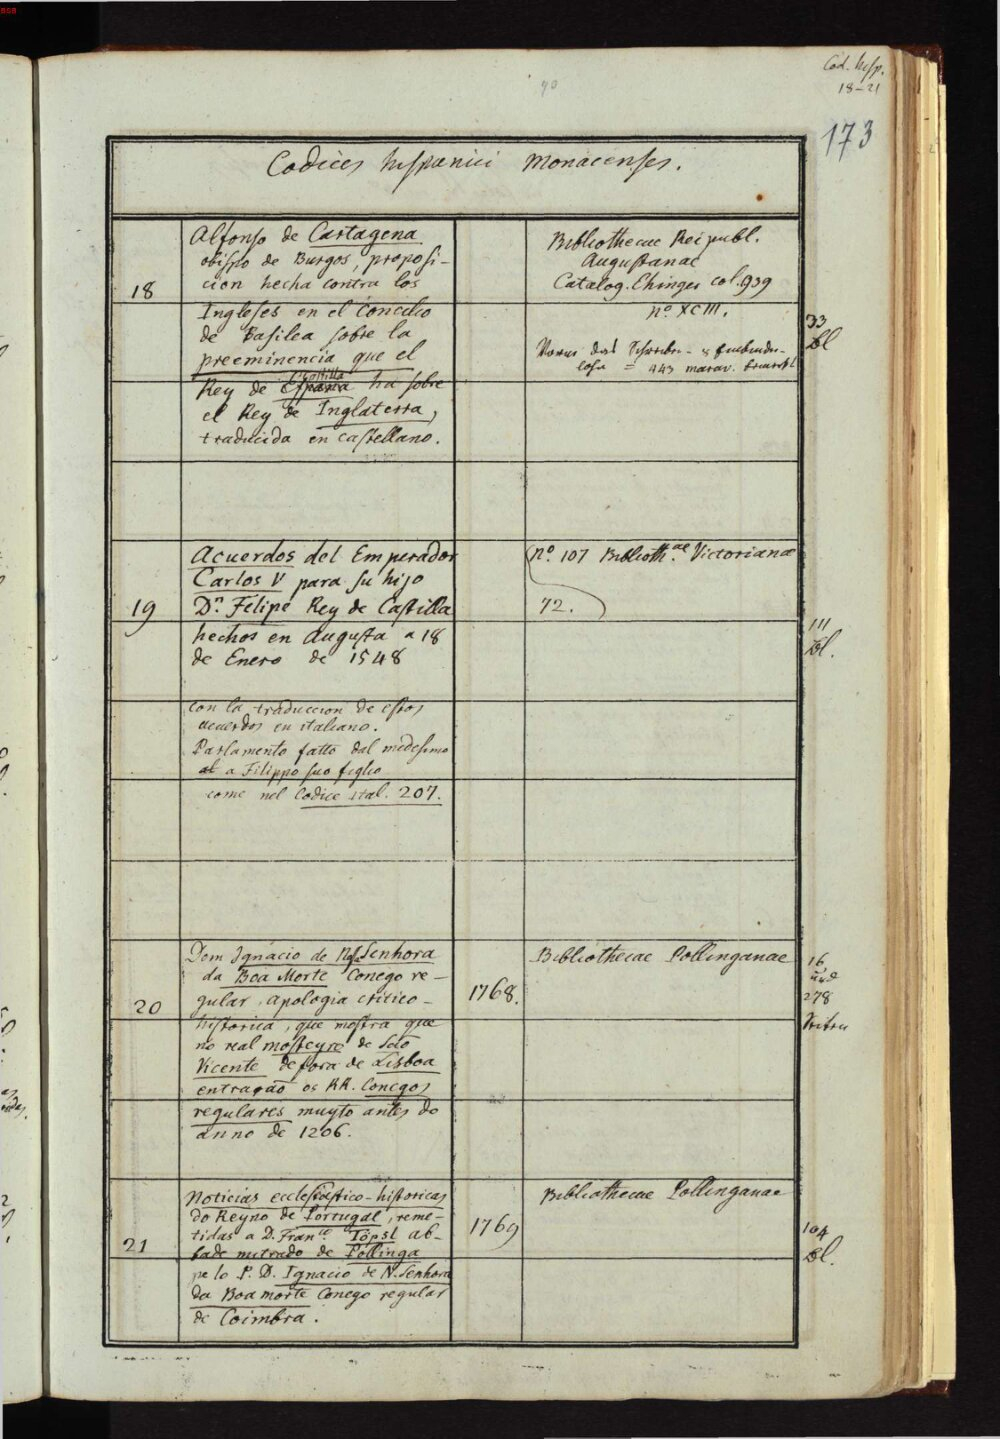 Cod. hisp.
18-21
90
173
Codices hispanici Monacenses.
18
Alfonso de Cartagena
obispo de Burgos, proposi-
cion hecha contra los
Ingleses en el Concilio
de Basilea sobre la
preeminencia que el
Castilla
Rey de España ha sobre
el Rey de Inglaterra,
traducida en castellano.
Bibliothecae Reipubl.
Augustanae
Catalog. Ehinger col. 939
nº XCIII.
= 443 marav.
33
Bl
19
Acuerdos del Emperador
Carlos V para su hijo
Dn. Felipe Rey de Castilla
hechos en Augusta a 18
de Enero de 1548
con la traduccion de estos
acuerdos en italiano.
Parlamento fatto dal medesimo
al a Filippo suo figlio
come nel Codice ital. 207.
nº 107 Biblioth.ae Victorianae
72.
111
Bl.
20
Dom Ignacio de Nsa Senhora
da Boa Morte Conego re-
gular, apologia critico-
historica, que mostra que
no real mosteyro de São
Vicente de fora de Lisboa
entração os RR. Conegos
regulares muyto antes do
anno de 1206.
1768.
Bibliothecae Pollinganae
16
und
278
21
Noticias ecclesiastico-historicas
do Reyno de Portugal, reme-
tidas a D. Franco Töpsl ab-
bade mitrado de Pollinga
pelo P. D. Ignacio de N. Senhora
da Boa morte Conego regular
de Coimbra.
1769
Bibliothecae Pollinganae
104
Bl.